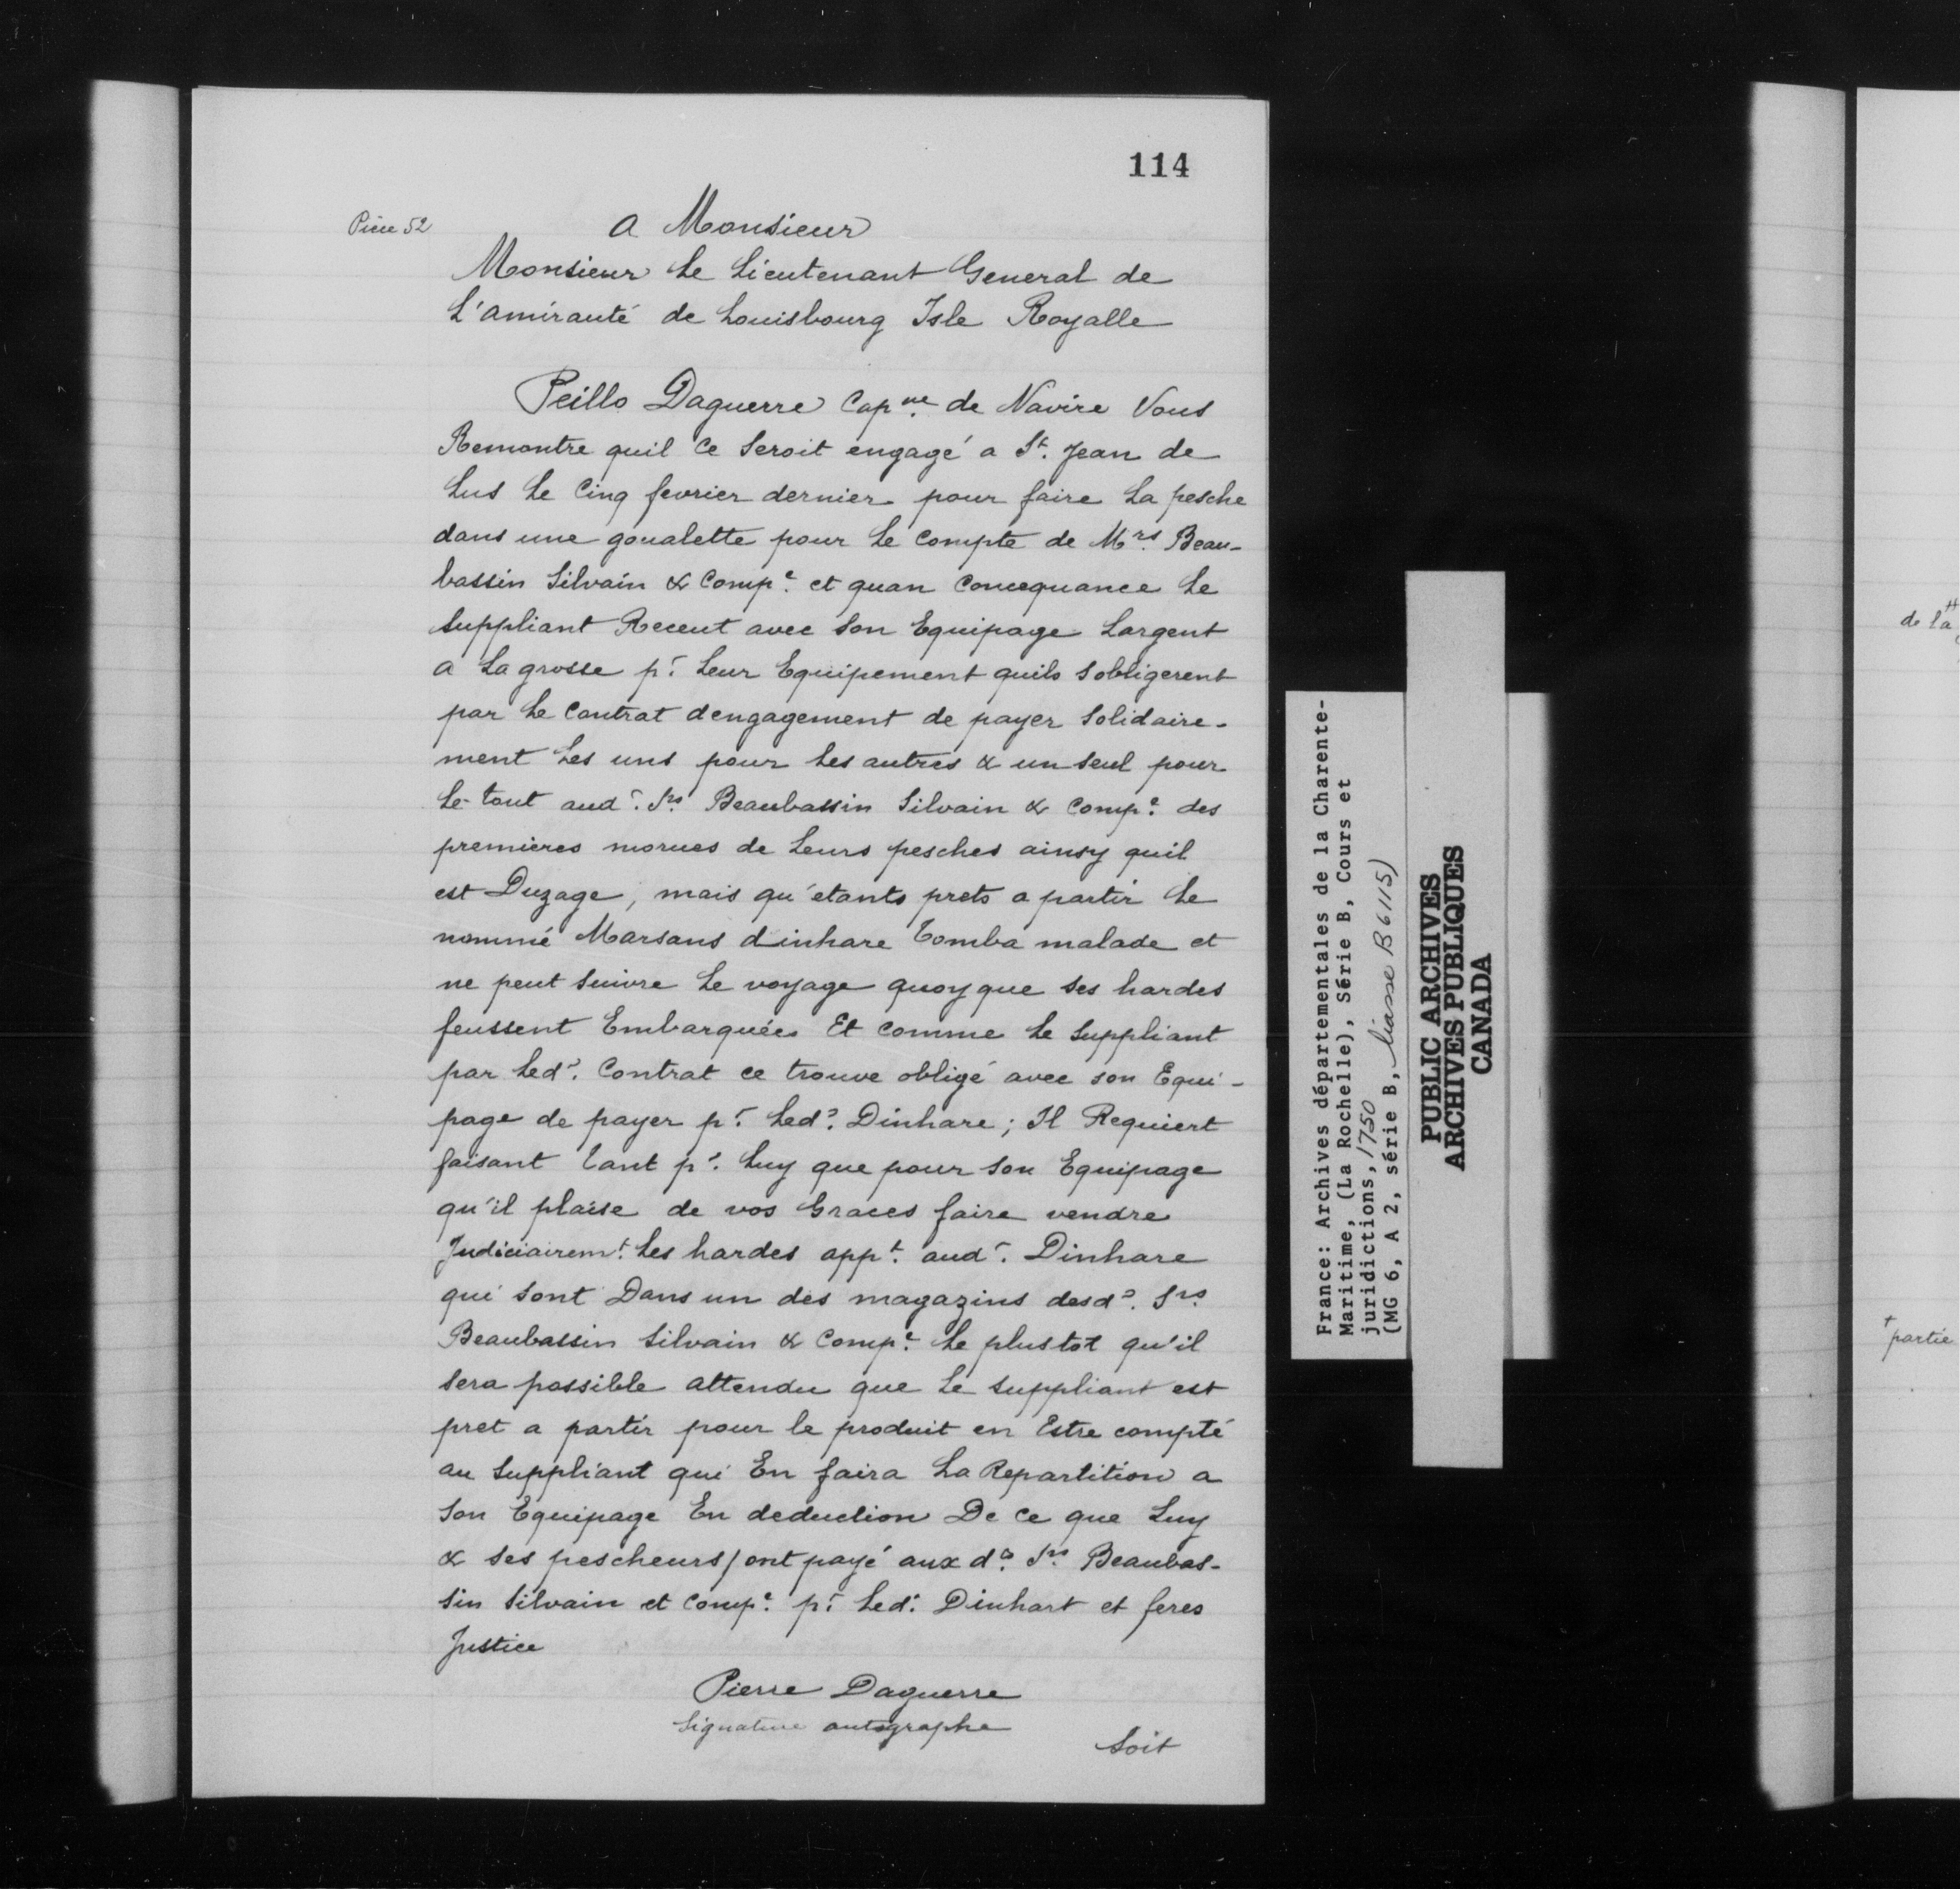 114
Pièce 52
A Monsieur
Monsieur Le Lieutenant General de
L'amirauté de Louisbourg Isle Royalle
Peillo Daguerre Cap.ne de Navire Vous
Remontre quil Ce Seroit engagé a St. Jean de
Lus Le Cinq fevrier dernier pour faire La pesche
dans une goualette pour Le Compte de Mrs. Beau-
bassin Silvain & Compe. et quan Concequance Le
Suppliant Receut avec Son Equipage Largent
a La grosse pr. Leur Equipement quils Sobligerent
par Le Contrat dengagement de payer Solidaire-
ment Les uns pour Les autres & un Seul pour
Le tout audt. Srs. Beaubassin Silvain & Compe. des
premieres morues de Leurs pesches ainsy quil
est Duzage, mais qu'etants prets a partir Le
nommé Marsans dinhare Tomba malade et
ne peut Suivre Le voyage quoy que Ses hardes
feussent Embarquées Et Comme Le Suppliant
par Ledt. Contrat ce trouve obligé avec son Equi-
page de payer pr. Ledt. Dinhare; Il Requiert
faisant Tant pr. Luy que pour Son Equipage
qu'il plaise de vos Graces faire vendre
Judiciairemt. Les hardes appt. audt. Dinhare
qui Sont Dans un des magazins desdt. Srs.
Beaubassin Silvain & Compe. Le plustot qu'il
Sera possible attendu que Le Suppliant est
pret a partir pour le produit en Estre compté
au Suppliant qui En faira La Repartition a
Son Equipage En deduction De Ce que Luy
& Ses pescheurs/ont payé aux ds. Srs. Beaubas-
sin Silvain et Compe. pr. Led. Dinhart et feres
Justice
Pierre Daguerre
Signature autographe
Soit
France: Archives départementales de la Charente-
Maritime, (La Rochelle), Série B, Cours et
juridictions, 1750
(MG 6, A 2, série B, liasse B 6115)
PUBLIC ARCHIVES
ARCHIVES PUBLIQUES
CANADA
de la
partie